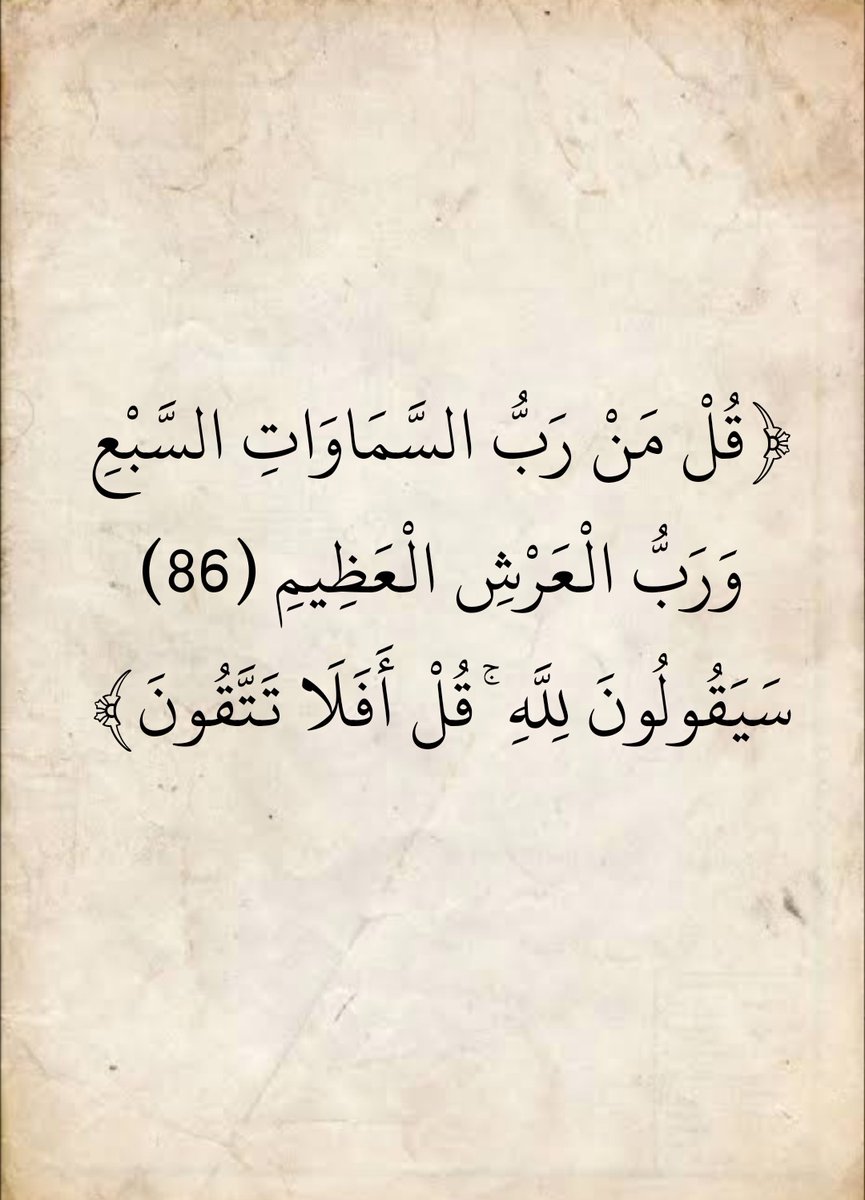 ﴿قُلْ مَنْ رَبُّ السَّمَاوَاتِ السَّبْعِ
وَرَبُّ الْعَرْشِ الْعَظِيمِ (86)
سَيَقُولُونَ لِلَّهِ ۚ قُلْ أَفَلَا تَتَّقُونَ﴾